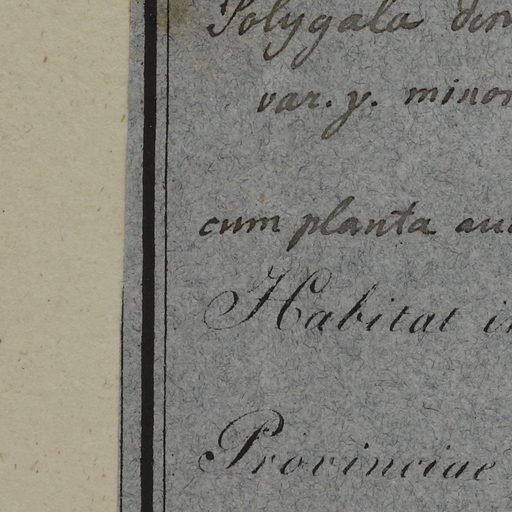 Polygala
var. γ. minor
cum planta
Habitat
Provinciae